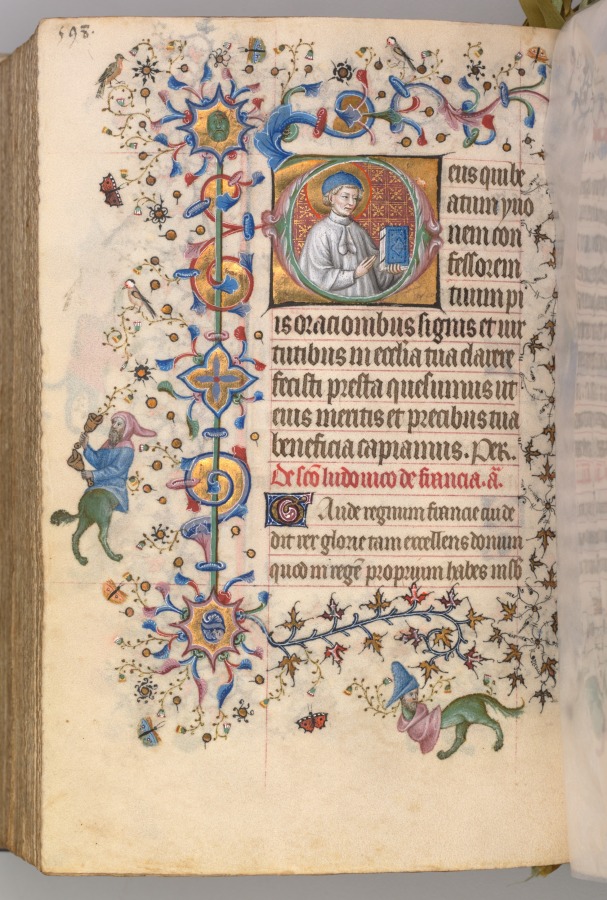 598.
eus qui be
atum yuo
nem con
fessorem
tuum pi
is orationibus signis et uir
tutibus in ecclia tua clarere
fecisti presta quesumus ut
eius meritis et precibus tua
beneficia capiamus. Per.
De sco ludouico de francia. a.
Gaude regnum francie cui de
dit rex glorie tam excellens donum
quod in regē proprium habes in sb